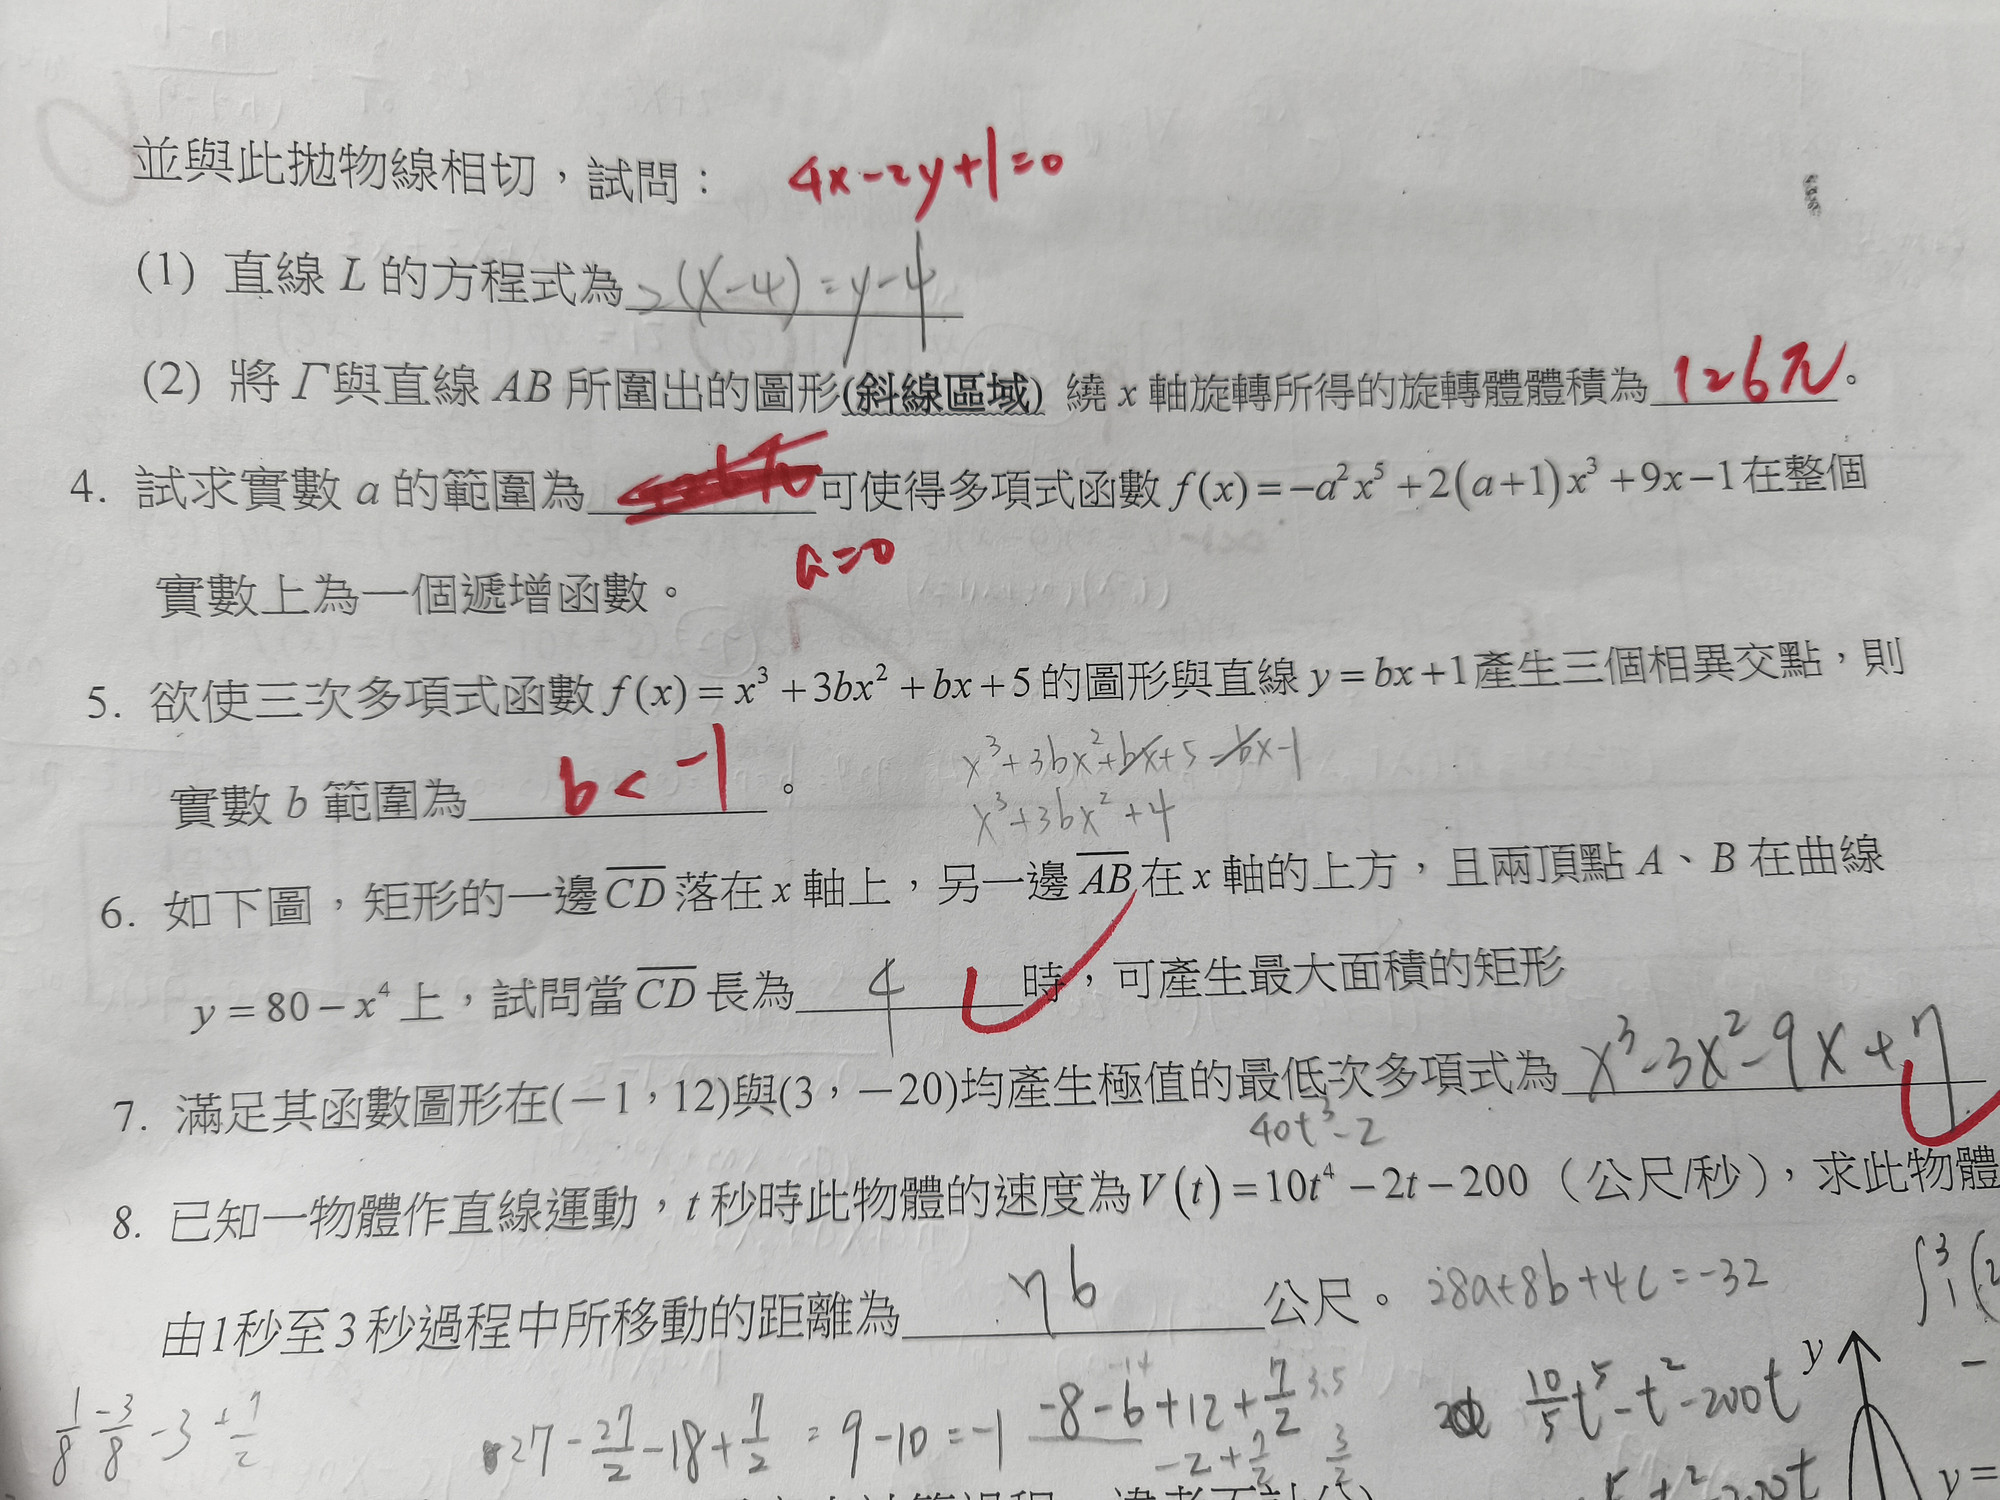 並與此拋物線相切，試問： 4x-2y+1=0
(1) 直線 L 的方程式為 2(x-4)=y-4
(2) 將 Γ與直線 AB 所圍出的圖形(斜線區域) 繞 x 軸旋轉所得的旋轉體體積為 126π。
4. 試求實數 a 的範圍為 可使得多項式函數 f(x)=-a²x⁵+2(a+1)x³+9x-1在整個
a=0
實數上為一個遞增函數。
5. 欲使三次多項式函數 f(x)=x³+3bx²+bx+5 的圖形與直線 y=bx+1產生三個相異交點，則
x³+3bx²+bx+5-bx-1
實數 b 範圍為 b<-1 。
x³+3bx²+4
6. 如下圖，矩形的一邊 CD 落在 x 軸上，另一邊 AB 在 x 軸的上方，且兩頂點 A、B 在曲線
y=80-x⁴ 上，試問當 CD 長為 4 時，可產生最大面積的矩形
7. 滿足其函數圖形在(-1，12)與(3，-20)均產生極值的最低次多項式為 x³-3x²-9x+7
40t³-2
8. 已知一物體作直線運動，t 秒時此物體的速度為 V(t)=10t⁴-2t-200（公尺/秒），求此物體
由1秒至3秒過程中所移動的距離為 76 公尺。 28a+8b+4c=-32
y
-14
1/8 -3/8 -3 +7/2
27-27/2-18+7/2=9-10=-1
-8-6+12+7/2 3.5
10/5t⁵-t²-200t
-2+7/2 3/2
y=